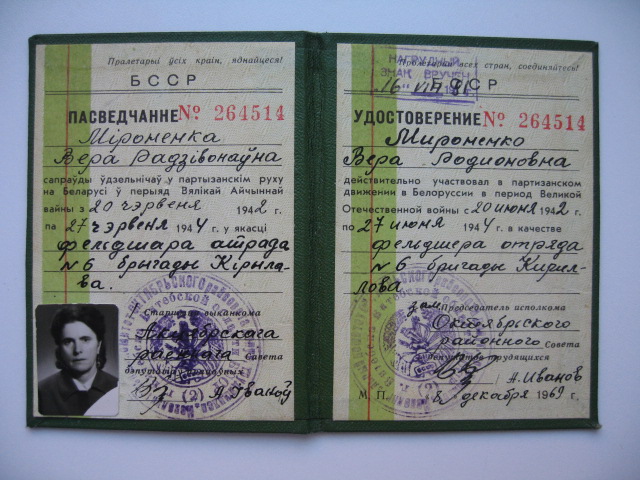 Пралетарыі ўсіх краін, яднайцеся!
БССР
ПАСВЕДЧАННЕ № 264514
Міроменка
Вера Радзівонаўна
сапраўды ўдзельнічаў у партызанскім руху
на Беларусі ў перыяд Вялікай Айчыннай
вайны з 20 чэрвеня 1942 г.
па 27 чэрвеня 1944 г. у якасці
фельдшара атрада
№ 6 брыгады Кірыла-
ва.
Старшыня выканкома
Актябрскага
раённага Совета
дэпутатаў працоўных
А. Іваноў
Пролетарии всех стран, соединяйтесь!
НАГРУДНЫЙ
ЗНАК ВРУЧЕН
БССР
УДОСТОВЕРЕНИЕ № 264514
Мироменко
Вера Родионовна
действительно участвовал в партизанском
движении в Белоруссии в период Великой
Отечественной войны с 20 июня 1942 г.
по 27 июня 1944 г. в качестве
фельдшера отряда
№ 6 бригады Кирил-
лова
зам. Председатель исполкома
Октябрьского
районного Совета
депутатов трудящихся
А. Иванов
М. П. 8 декабря 1969 г.